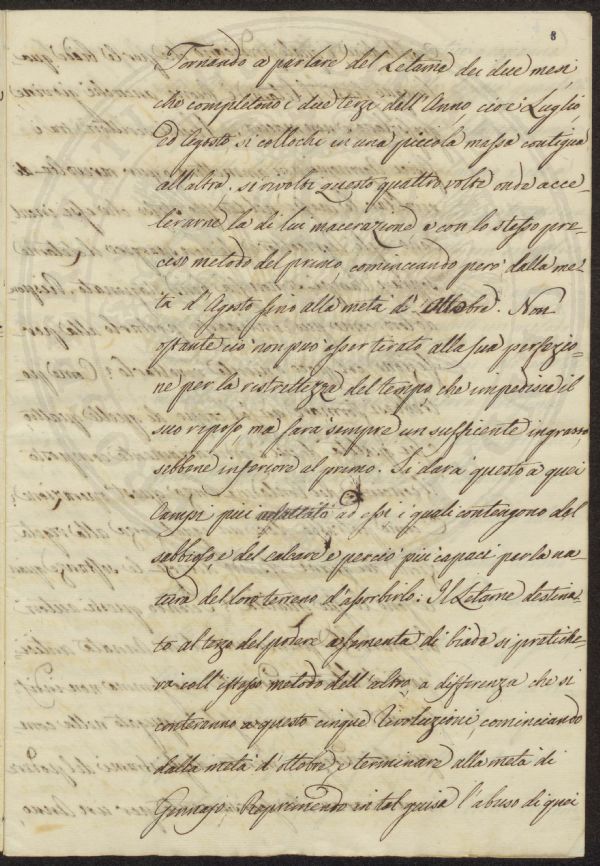 8
Tornando a parlare del Letame dei due mesi
che completono i due terzi dell'Anno, cioè Luglio,
ed Agosto, si colloche in una piccola massa contigua
all'altra. si rivolti questo quattro volte onde acce-
lerarne la di lui macerazione e con lo stesso pre-
ciso metodo del primo, cominciando però dalla me-
tà d'Agosto fino alla metà d'Ottobre. Non
ostante ciò non può esser tirato alla sua perfezio-
ne per la ristrettezza del tempo, che impedisce il
suo riposo, ma sarà sempre un sufficente ingrasso,
sebbene inferiore al primo. Si darà questo a quei
Campi più ad essi i quali contengono del
sabbioso e del calcare e perciò più capaci per la na-
tura del loro terreno d'assorbirlo: Il Letame destina-
to al terzo del podere a sementa di biada si pratiche-
rà coll'istesso metodo dell'altro, a differenza che si
conteranno a questo cinque rivoluzioni, cominciando
dalla metà d'ottobre e terminare alla metà di
Gennajo. Reprimendo in tal guisa l'abuso di quei